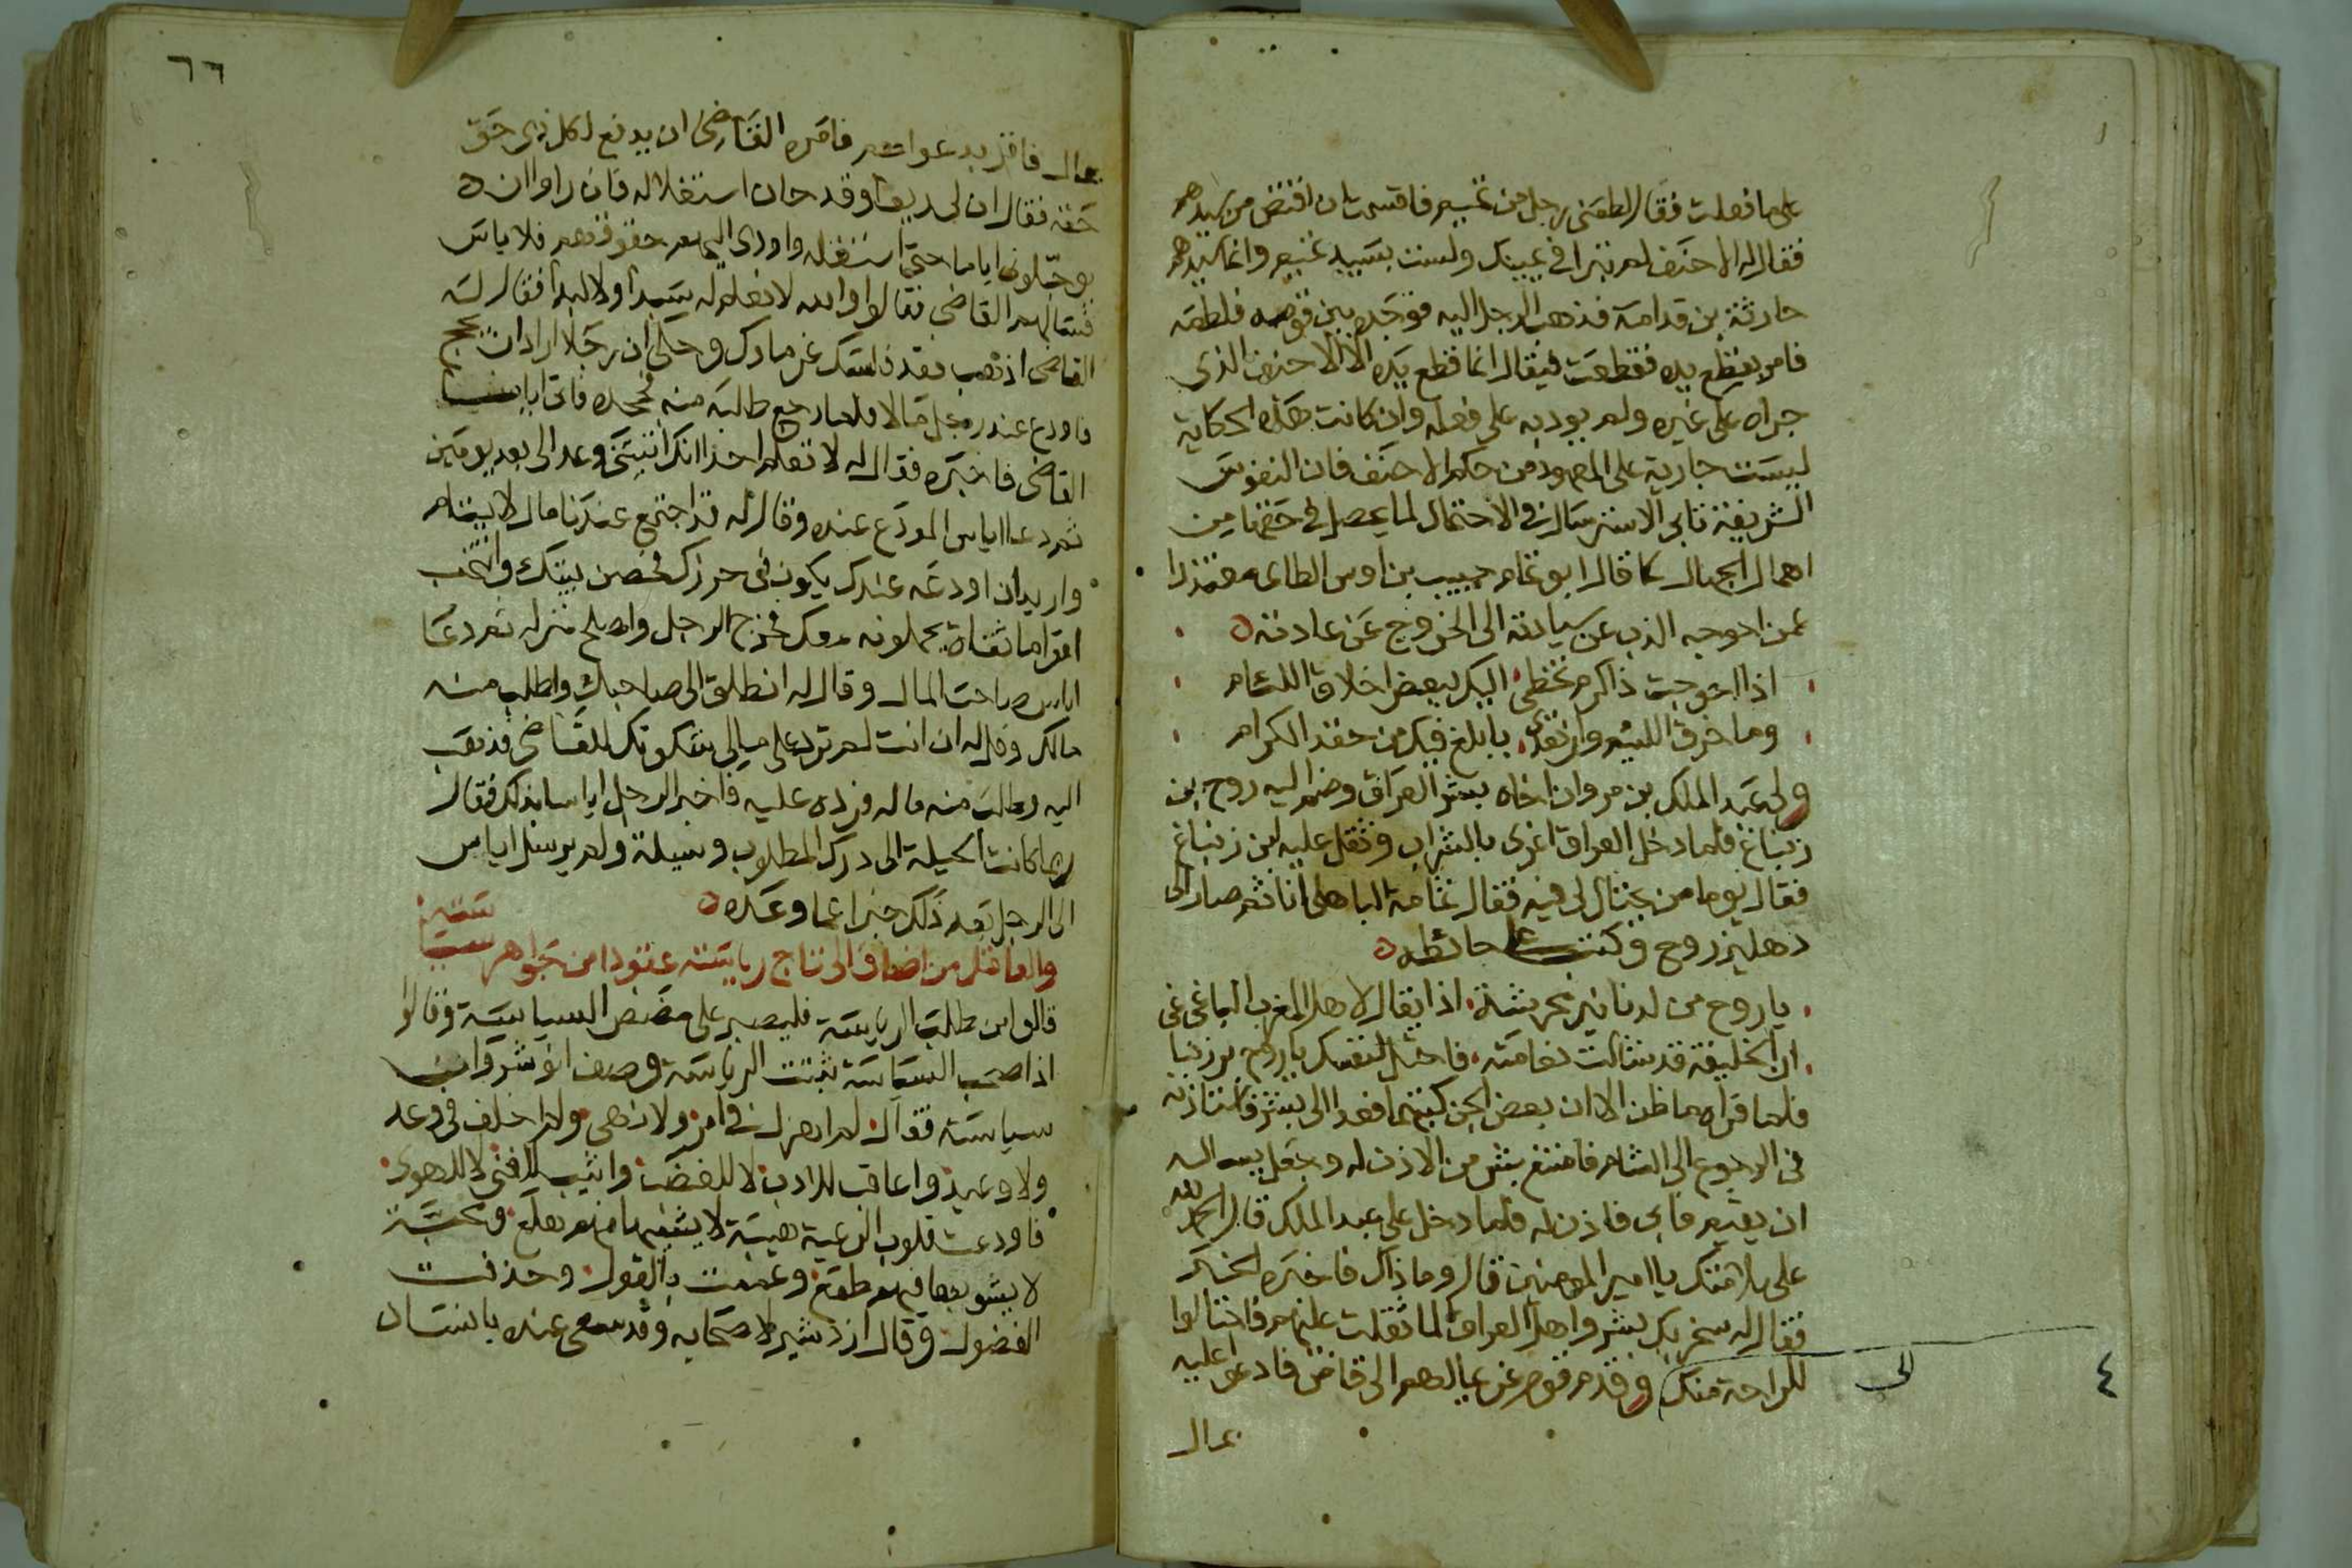 على ما فعلت فقال لطمني رجل من تميم فاقسمت ان اقتص من سيدهم
فقال له الاحنف لم تبرا في يمينك ولست بسيد تميم وانما سيدهم
حارثة بن قدامة فذهب الرجل اليه فوجده بين قومه فلطمه
فامر بقطع يده فقطعت فيقال انما قطع يده الا الاحنف الذي
جراه على غيره ولم يودبه على فعله وان كانت هذه الحكاية
ليست جارية على المعهود من حكم الاحنف فان النفوس
الشريفة تابى الاسترسال في الاحتمال لما يحصل في حقها من
اهمال الجهال كما قال ابو تمام حبيب بن اوس الطاى معتذرا
عمن احوجه الذب عن سيادته الى الخروج عن عادته
اذا احوجت ذا كرم تخطى اليك ببعض اخلاق اللئام
وما خرق اللئيم وان تعدى بابلغ فيك من حقد الكرام
ولى عبد الملك بن مروان اخاه بشر العراق وضم اليه روح بن
زنباع فلما دخل العراق اغرى بالشراب وثقل عليه ابن زنباع
فقال يوما من يحتال لى فيه فقال ثمامة الباهلى انا ثم صار الى
دهليز روح وكتب على حائطه
يا روح من لبنات محرشة اذا يقال لاهل المغرب الباغى
ان الخليفة قد شالت نعامته فاحتل لنفسك يا روح بن زنبا
فلما قراهما ظن الا ان بعض الجن كتبهما فغدا الى بشر فاستاذنه
فى الرجوع الى الشام فامتنع بشر من الاذن له وجعل يساله
ان يقيم فابى فاذن له فلما دخل على عبد الملك قال الحمد لله
على سلامتك يا امير المومنين قال وما ذاك فاخبره الخبر
فقال له سخر بك بشر واهل العراق لما ثقلت عليهم فاحتالوا
للراحة منك وقدم قوم غريما لهم الى قاض فادعوا عليه
الى
٤
بمال
٦٦
بمال فاقر بدعواهم فامره القاضى ان يدفع لكل ذى حق
حقه فقال ان لى ريعا وقد حان استغلاله فان راوا ان
يوجلونى اياما حتى استغله واودى اليهم حقوقهم فلا باس
فسالهم القاضى فقالوا والله لا نعلم له سبدا ولا لبدا فقال له
القاضى اذهب فقد فلسك غرماوك وحكى ان رجلا اراد ان يحج
فاودع عند رجل مالا فلما رجع طالبه منه فجحده فاتى اياسا
القاضى فاخبره فقال له لا تعلم احدا انك اتيتنى وعد الى بعد يومين
ثم دعا اياس المودع عنده وقال له قد اجتمع عندنا مال لايتام
واريد ان اودعه عندك يكون فى حرزك فحصن بيتك وانتخب
اقواما ثقاة يحملونه معك فخرج الرجل واصلح منزله ثم دعا
اياس صاحب المال وقال له انطلق الى صاحبك واطلب منه
مالك وقل له ان انت لم ترد على مالى شكوتك للقاضى فذهب
اليه وطلب منه ماله فرده عليه فاخبر الرجل اياسا بذلك فقال
ربما كانت الحيلة الى درك المطلوب وسيلة ولم يرسل اياس
الى الرجل بعد ذلك خبرا عما وعده
والعاقل من اضاف الى تاج رياسته عقودا من جواهر سياسته
قالوا من طلب الرياسة فليصبر على مضض السياسة وقالوا
اذا صحت السياسة ثبتت الرياسة وصف انوشروان
سياسته فقال لم اهزل فى امر ولا نهى ولم اخلف فى وعد
ولا وعيد واعاقب للادب لا للغضب واثيب للغنى لا للهوى
فاودعت قلوب الرعية هيبة لا يشينها منهم هلع ومحبة
لا يشوبها فيهم طمع وعممت بالقول وحذفت
الفضول وقال ازدشير لاصحابه وقد سعى عنده بانسان